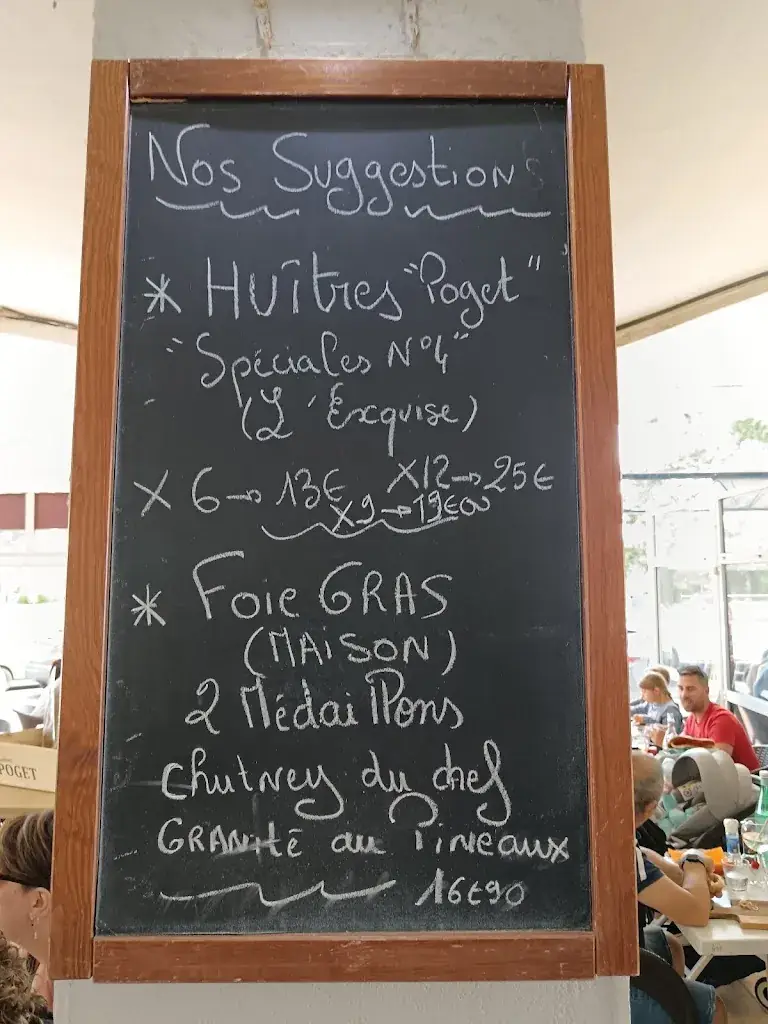 Nos Suggestions
* HUÎtres "Poget"
"Spéciales N°4"
(L'Exquise)
X 6→ 13€ X12→25€
X9→19€00
* Foie GRAS
(MAiSON)
2 Médaillons
chutney du chef
GRANité au Pineaux
16€90
POGET